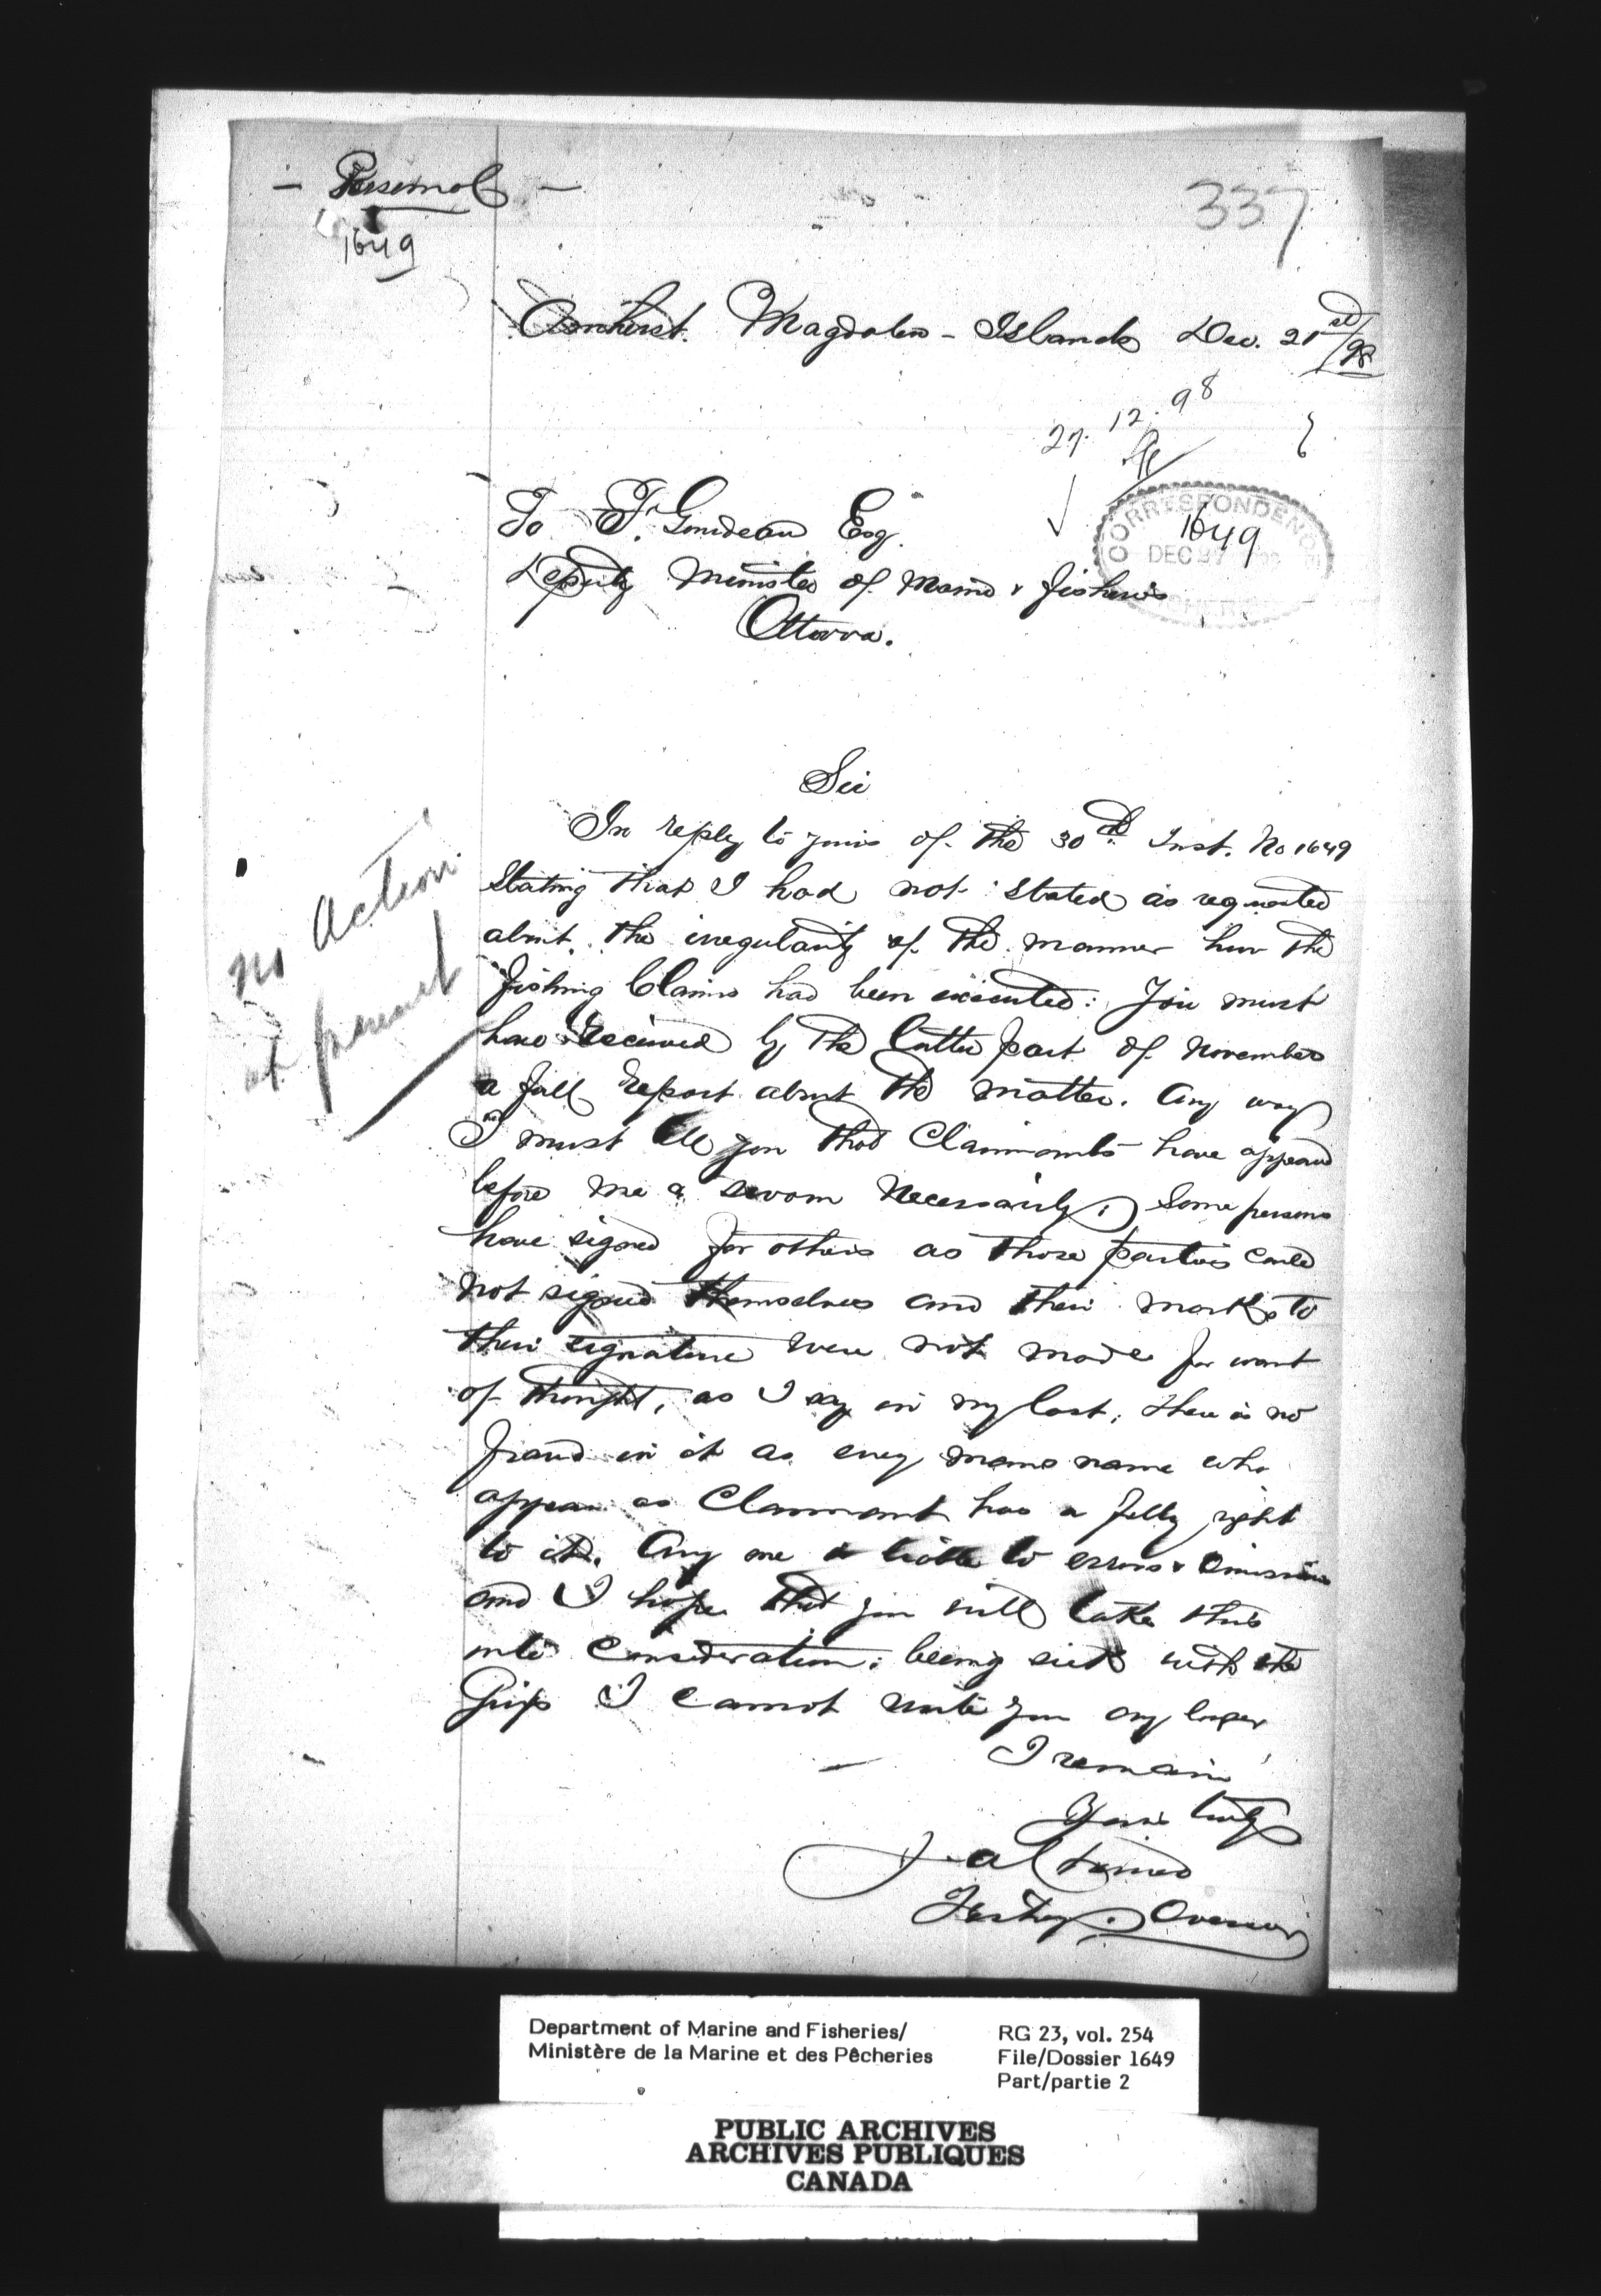 — Personal —
1649
337
Amherst. Magdalen - Islands Dec. 21st/98
27. 12. 98
To F. Gourdeau Esq.
CORRESPONDENCE
1649
DEC 27
Deputy Minister of Marine & Fisheries
Ottawa.
Sir
In reply to yours of the 30th Inst. No 1649
Stating that I had not stated as requested
about the iregularity of the manner how the
fishing Claims had been executed: You must
have Received by the latter part of November
a full Report about the matter. Any way
I must tell you that Claimants have appeard
before me & sworn Necessarily, Some persons
have signed for others as those parties could
not signed themselves and their marks to
their signature were not made for want
of thought, as I say in my last, there is no
fraud in it as every mans name who
appear as Claimant has a fully right
to it. Any one is liable to errors & omissions
and I hope that you will take this
into Consideration; being sick with the
Grip I cannot write you any longer
I remain
Yours truly
J. A.
Fishy. Overseer
no action
at present
Department of Marine and Fisheries/
Ministère de la Marine et des Pêcheries
RG 23, vol. 254
File/Dossier 1649
Part/partie 2
PUBLIC ARCHIVES
ARCHIVES PUBLIQUES
CANADA